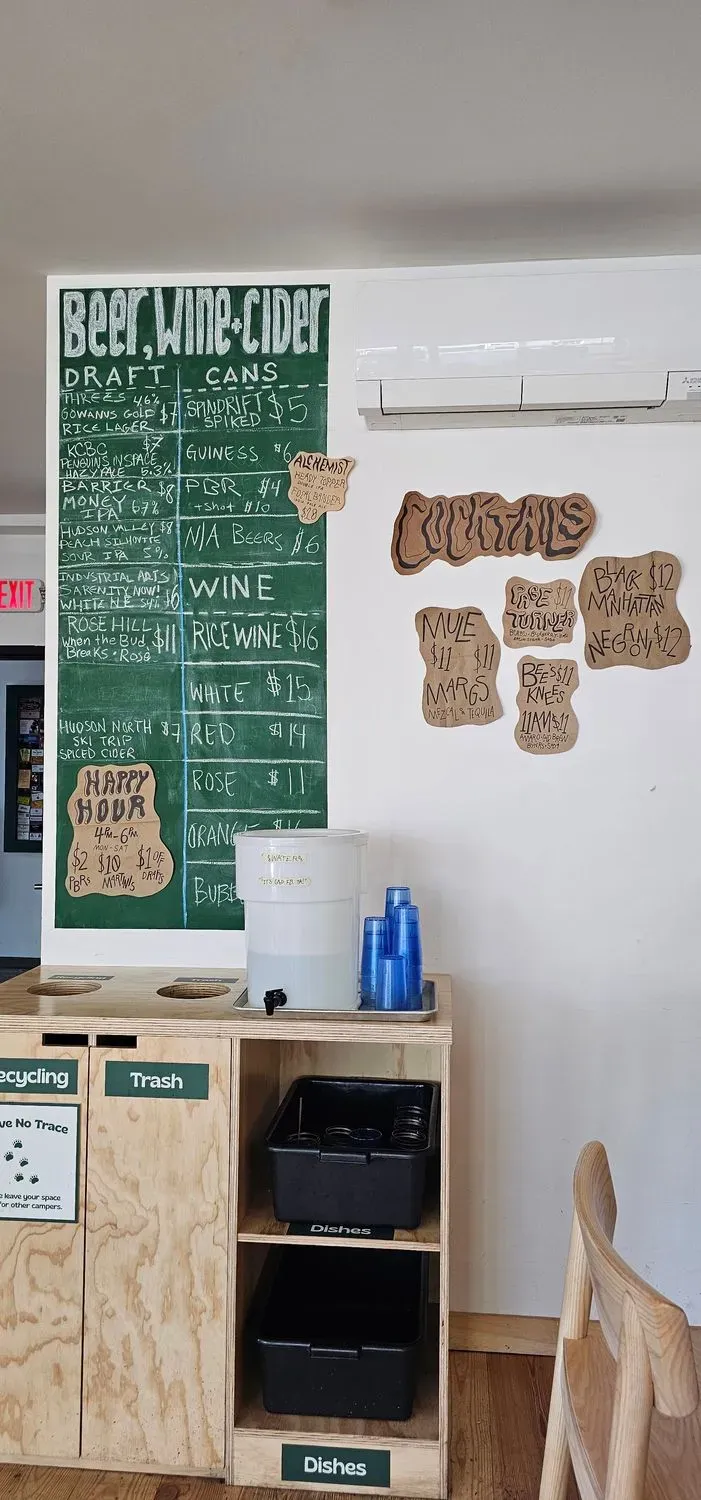 Beer, Wine + Cider
DRAFT
THREES 4.6%
GOWANUS GOLD $7
RICE LAGER
KCBC $7
PENGUINS IN SPACE
HAZY PALE 5.3%
BARRIER $8
MONEY
IPA 6.7%
HUDSON VALLEY $8
PEACH SILHOUTTE
SOUR IPA 5%
INDUSTRIAL ARTS
SARENITY NOW!
WHITE $6
ROSE HILL $11
When the Bud
Breaks • Rose
HUDSON NORTH $7
SKI TRIP
SPICED CIDER
CANS
SPINDRIFT $5
SPIKED
GUINESS $6
PBR $4
+ Shot $10
N/A BEERS $6
WINE
RICE WINE $16
WHITE $15
RED $14
ROSE $11
ORANGE
BUBB
ALCHEMIST
HEADY TOPPER
FOCAL BANGER
$28
HAPPY
HOUR
4PM-6PM
MON-SAT
$2 $10 $1 OFF
PBRs MARTINIS DRAFTS
COCKTAILS
MULE
$11 $11
MARGS
MEZCAL OR TEQUILA
$11
TURNER
BEE'S $11
KNEES
11AM $11
BLACK $12
MANHATTAN
NEGRONI $12
EXIT
WATER
ecycling
Trash
ve No Trace
e leave your space
for other campers.
Dishes
Dishes